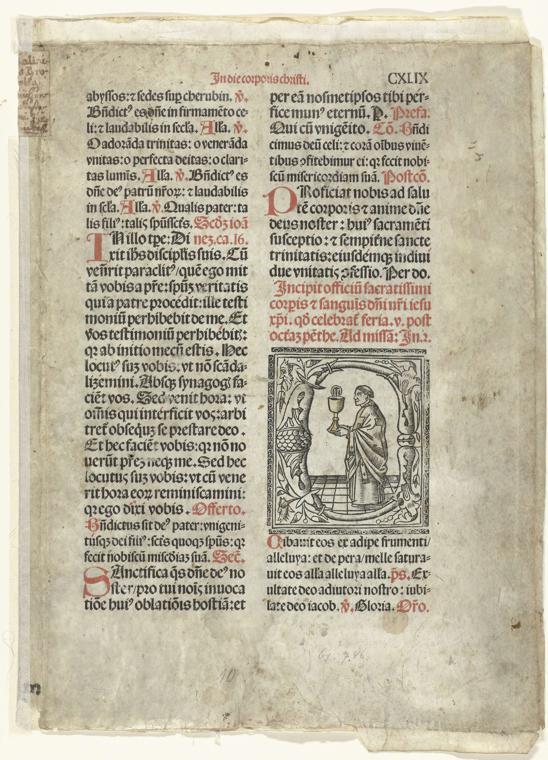 In die corporis christi.
CXLIX
abyssos: ⁊ sedes sup cherubin. ℣.
Bñdict⁹ es dñe in firmamēto ce-
li: ⁊ laudabilis in secła. Alła. ℣.
O adorāda trinitas: o venerāda
vnitas: o perfecta deitas: o clari-
tas lumīs. Alła. ℣. Bñdict⁹ es
dñe de⁹ patrū nr̄oꝝ: ⁊ laudabilis
in secła. Alła. ℣. Qualis pater: ta
lis fili⁹: talis spūsscts. Scdꝫ ioā
IN illo tpe: Di nez. ca. 16.
xit ihs discipłis suis. Cū
venerit paraclit⁹/ quē ego mit
tā vobis a pr̄e: spūꝫ veritatis
qui a patre procedit: ille testi
moniū perhibebit de me. Et
vos testimoniū perhibebit⁊:
qꝛ ab initio mecū estis. Hec
locut⁹ suꝫ vobis. vt nō scāda-
lizemini. Absqꝫ synagog⁊ fa-
ciēt vos. Sed venit hora: vt
omīs qui interficit vos: arbi
tret̃ obsequiꝫ se prestare deo.
Et hec faciēt vobis: qꝛ nō no
uerūt prēꝫ neqꝫ me. Sed hec
locutus suꝫ vobis: vt cū vene
rit hora eoꝝ reminiscamini:
qꝛ ego dixi vobis. Offerto.
Bñdictus sit de⁹ pater: vnigeni-
tusqꝫ dei fili⁹: scts quoqꝫ spūs: qꝛ
fecit nobiscū misc̄diaꝫ suā. Sec̄.
SAnctifica q̄s dñe de⁹ no
ster/ pro tui noīs inuoca
tiōe hui⁹ oblatiōis hostiā: et
per eā nosmetipsos tibi per-
fice mun⁹ eternū. P. Prefa.
Qui cū vnigēito. Cō. Bñdi
cimus deū celi: ⁊ corā oībus viuē-
tibus ꝯfitebimur ei: qꝛ fecit nobi-
scū misericordiam suā. Postcō.
PRoficiat nobis ad salu
tē corporis ⁊ anime dñe
deus noster: hui⁹ sacramēti
susceptio: ⁊ sempitēne sancte
trinitatis: eiusdēmqꝫ indiui
due vnitatis ꝯfessio. Per do.
Incipit officiū sacratissimi
corpīs ⁊ sanguīs dñi nr̄i iesu
xp̄i. qd̄ celebrat̃ feria. v. post
octaꝫ pēthe. Ad missā: In.2.
Cibauit eos ex adipe frumenti/
alleluya: et de petra/ melle satura-
uit eos alła alleluya alła. ps. Ex-
ultate deo adiutori nostro: iubi-
late deo iacob. ℣. Gloria. Oro.